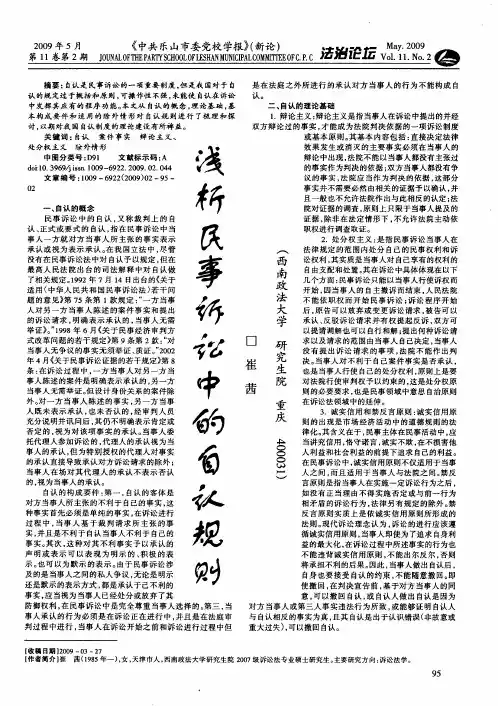 2009 年 5 月
第 11 卷第 2 期
《中共乐山市委党校学报》(新论)
JOUNAL OF THE PARTY SCHOOL OF LESHAN MUNICIPAL COMMITTEE OF C. P. C
法治论坛
May. 2009
Vol. 11. No. 2
摘要:自认是民事诉讼的一项重要制度,但是我国对于自
认的规定过于概括和原则,可操作性不强,未能使自认在诉讼
中发挥其应有的程序功能。本文从自认的概念,理论基础,基
本构成要件和适用的除外情形对自认规则进行了梳理和探
讨,以期对我国自认制度的理论建设有所裨益。
关键词:自认 案件事实 辩论主义、
处分权主义 除外情形
中图分类号:D91 文献标示码:A
doi:10.3969/j.issn.1009-6922.2009.02.044
文章编号:1009-6922(2009)02-95-
02
一、自认的概念
民事诉讼中的自认,又称裁判上的自
认、正式或要式的自认,指在民事诉讼中当
事人一方就对方当事人所主张的事实表示
承认或视为表示承认。在我国立法中,尽管
没有在民事诉讼法中对自认予以规定,但在
最高人民法院出台的司法解释中对自认做
了相关规定。1992 年 7 月 14 日出台的《关于
适用〈中华人民共和国民事诉讼法〉若干问
题的意见》第 75 条第 1 款规定:"一方当事
人对另一方当事人陈述的案件事实和提出
的诉讼请求,明确表示承认的,当事人无需
举证》。"1998 年 6 月《关于民事经济审判方
式改革问题的若干规定》第 9 条第 2 款:"对
当事人无争议的事实无须举证、质证。"2002
年 4 月《关于民事诉讼证据的若干规定》第 8
条:在诉讼过程中,一方当事人对另一方当
事人陈述的案件是明确表示承认的,另一方
当事人无需举证。但设计身份关系的案件除
外。对一方当事人陈述的事实,另一方当事
人既未表示承认,也未否认的,经审判人员
充分说明并讯问后,其仍不明确表示肯定或
否定的,视为对该项事实的承认。当事人委
托代理人参加诉讼的,代理人的承认视为当
事人的承认,但为特别授权的代理人对事实
的承认直接导致承认对方诉讼请求的除外;
当事人在场对其代理人的承认不表示否认
的,视为当事人的承认。
自认的构成要件:第一,自认的客体是
对方当事人所主张的不利于自己的事实,这
种事实首先必须是单纯的事实,在诉讼进行
过程中,当事人基于裁判请求所主张的事
实,并且是不利于自认当事人不利于自己的
事实。其次,这种对其不利事实予以承认的
声明或表示可以表现为明示的、积极的表
示。也可以为默示的表示。由于民事诉讼涉
及的是当事人之间的私人争议,无论是明示
还是默示的表示方式,都是承认于己不利的
事实,应当视为当事人已经处分或放弃了其
防御权利,在民事诉讼中是完全尊重当事人选择的。第三,当
事人承认的行为必须是在诉讼正在进行中,并且是在法庭审
判过程中进行,当事人在诉讼开始之前和诉讼进行过程中但
浅析民事诉讼中的自认规则
□ 崔 茜
(西南政法大学 研究生院 重庆 400031)
是在法庭之外所进行的承认对方当事人的行为不能构成自
认。
二、自认的理论基础
1. 辩论主义:辩论主义是指当事人在诉讼中提出的并经
双方辩论过的事实,才能成为法院判决依据的一项诉讼制度
或基本原则。其基本内容包括:直接决定法律
效果发生或消灭的主要事实必须在当事人的
辩论中出现,法院不能以当事人都没有主张过
的事实作为判决的依据;双方当事人都没有争
议的事实,法院应当作为判决的依据,这部分
事实并不需要必然由相关的证据予以确认,并
且一般也不允许法院作出与此相反的认定;法
院对证据的调查,原则上只限于当事人提及的
证据,除非在法定情形下,不允许法院主动依
职权进行调查取证。
2. 处分权主义:是指民事诉讼当事人在
法律规定的范围内处分自己的民事权利和诉
讼权利,其实质是当事人对自己享有的权利的
自由支配和处置。其在诉讼中具体体现在以下
几个方面:民事诉讼只能以当事人行使诉权而
开始,因当事人的自主撤诉而结束,人民法院
不能依职权而开始民事诉讼;诉讼程序开始
后,原告可以放弃或变更诉讼请求,被告可以
承认、反驳诉讼请求并有权提起反诉,双方可
以提请调解也可以自行和解;提出何种诉讼请
求以及请求的范围由当事人自己决定,当事人
没有提出诉讼请求的事项,法院不能作出判
决。当事人对不利于自己案件事实是否承认,
也是当事人行使自己的处分权利,原则上是要
对法院行使审判权予以约束的,这是处分权原
则的必要要求,也是民事领域中意思自治原则
在诉讼法领域中的延伸。
3. 诚实信用和禁反言原则:诚实信用原
则的出现是市场经济活动中的道德规则的法
律化。其含义在于,民事主体在民事活动中,应
当讲究信用,恪守诺言,诚实不欺,在不损害他
人利益和社会利益的前提下追求自己的利益。
在民事诉讼中,诚实信用原则不仅适用于当事
人之间,而且适用于当事人与法院之间。禁反
言原则是指当事人在实施一定诉讼行为之后,
如没有正当理由不得实施否定或与前一行为
相矛盾的诉讼行为,法律另有规定的除外。禁
反言原则实质上是依诚实信用原则所形成的
法则。现代诉讼理念认为,诉讼的进行应该遵
循诚实信用原则,当事人即使为了追求自身利
益的最大化,在诉讼过程中所述事实的行为也
不能违背诚实信用原则,不能出尔反尔,否则
将承担不利的后果。因此,当事人做出自认后,
自身也要接受自认的约束,不能随意撤回。即
使撤回,在判决宣告前,基于对方当事人的同
意,可以撤回自认,或自认人做出自认是因为
对方当事人或第三人事实违法行为所致,或能够证明自认人
与自认相反的事实为真,且其自认是出于认识错误(非故意或
重大过失),可以撤回自认。
[收稿日期]2009-03-27
[作者简介]崔 茜(1985年—),女,天津市人,西南政法大学研究生院 2007 级诉讼法专业硕士研究生。主要研究方向:诉讼法学。
95